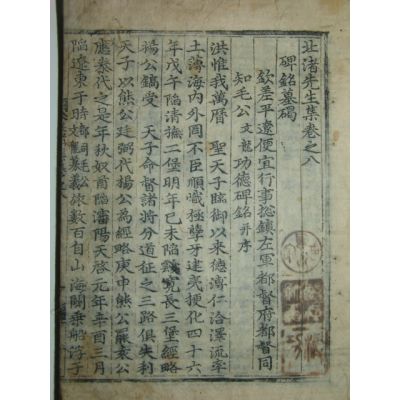 北渚先生集卷之八
碑銘墓碣
欽差平遼便宜行事摠鎮左軍都督府都督同
知毛公文龍功德碑銘并序
洪惟我萬曆 聖天子臨御以來德溥仁洽澤流率
土薄海內外罔不臣順職極孽牙建夷梗化四十六
年戊午陷清撫二堡明年己未陷 寬長三堡經略
楊公鎬受 天子命督諸將分道征之三路俱失利
天子以熊公廷弼代楊公為經略庚申熊公罷袁公
應泰代之是年秋奴酋陷瀋陽天啓元年辛酉三月
陷遼東于時都 毛公 募義旅數百自山海關乘船浮于